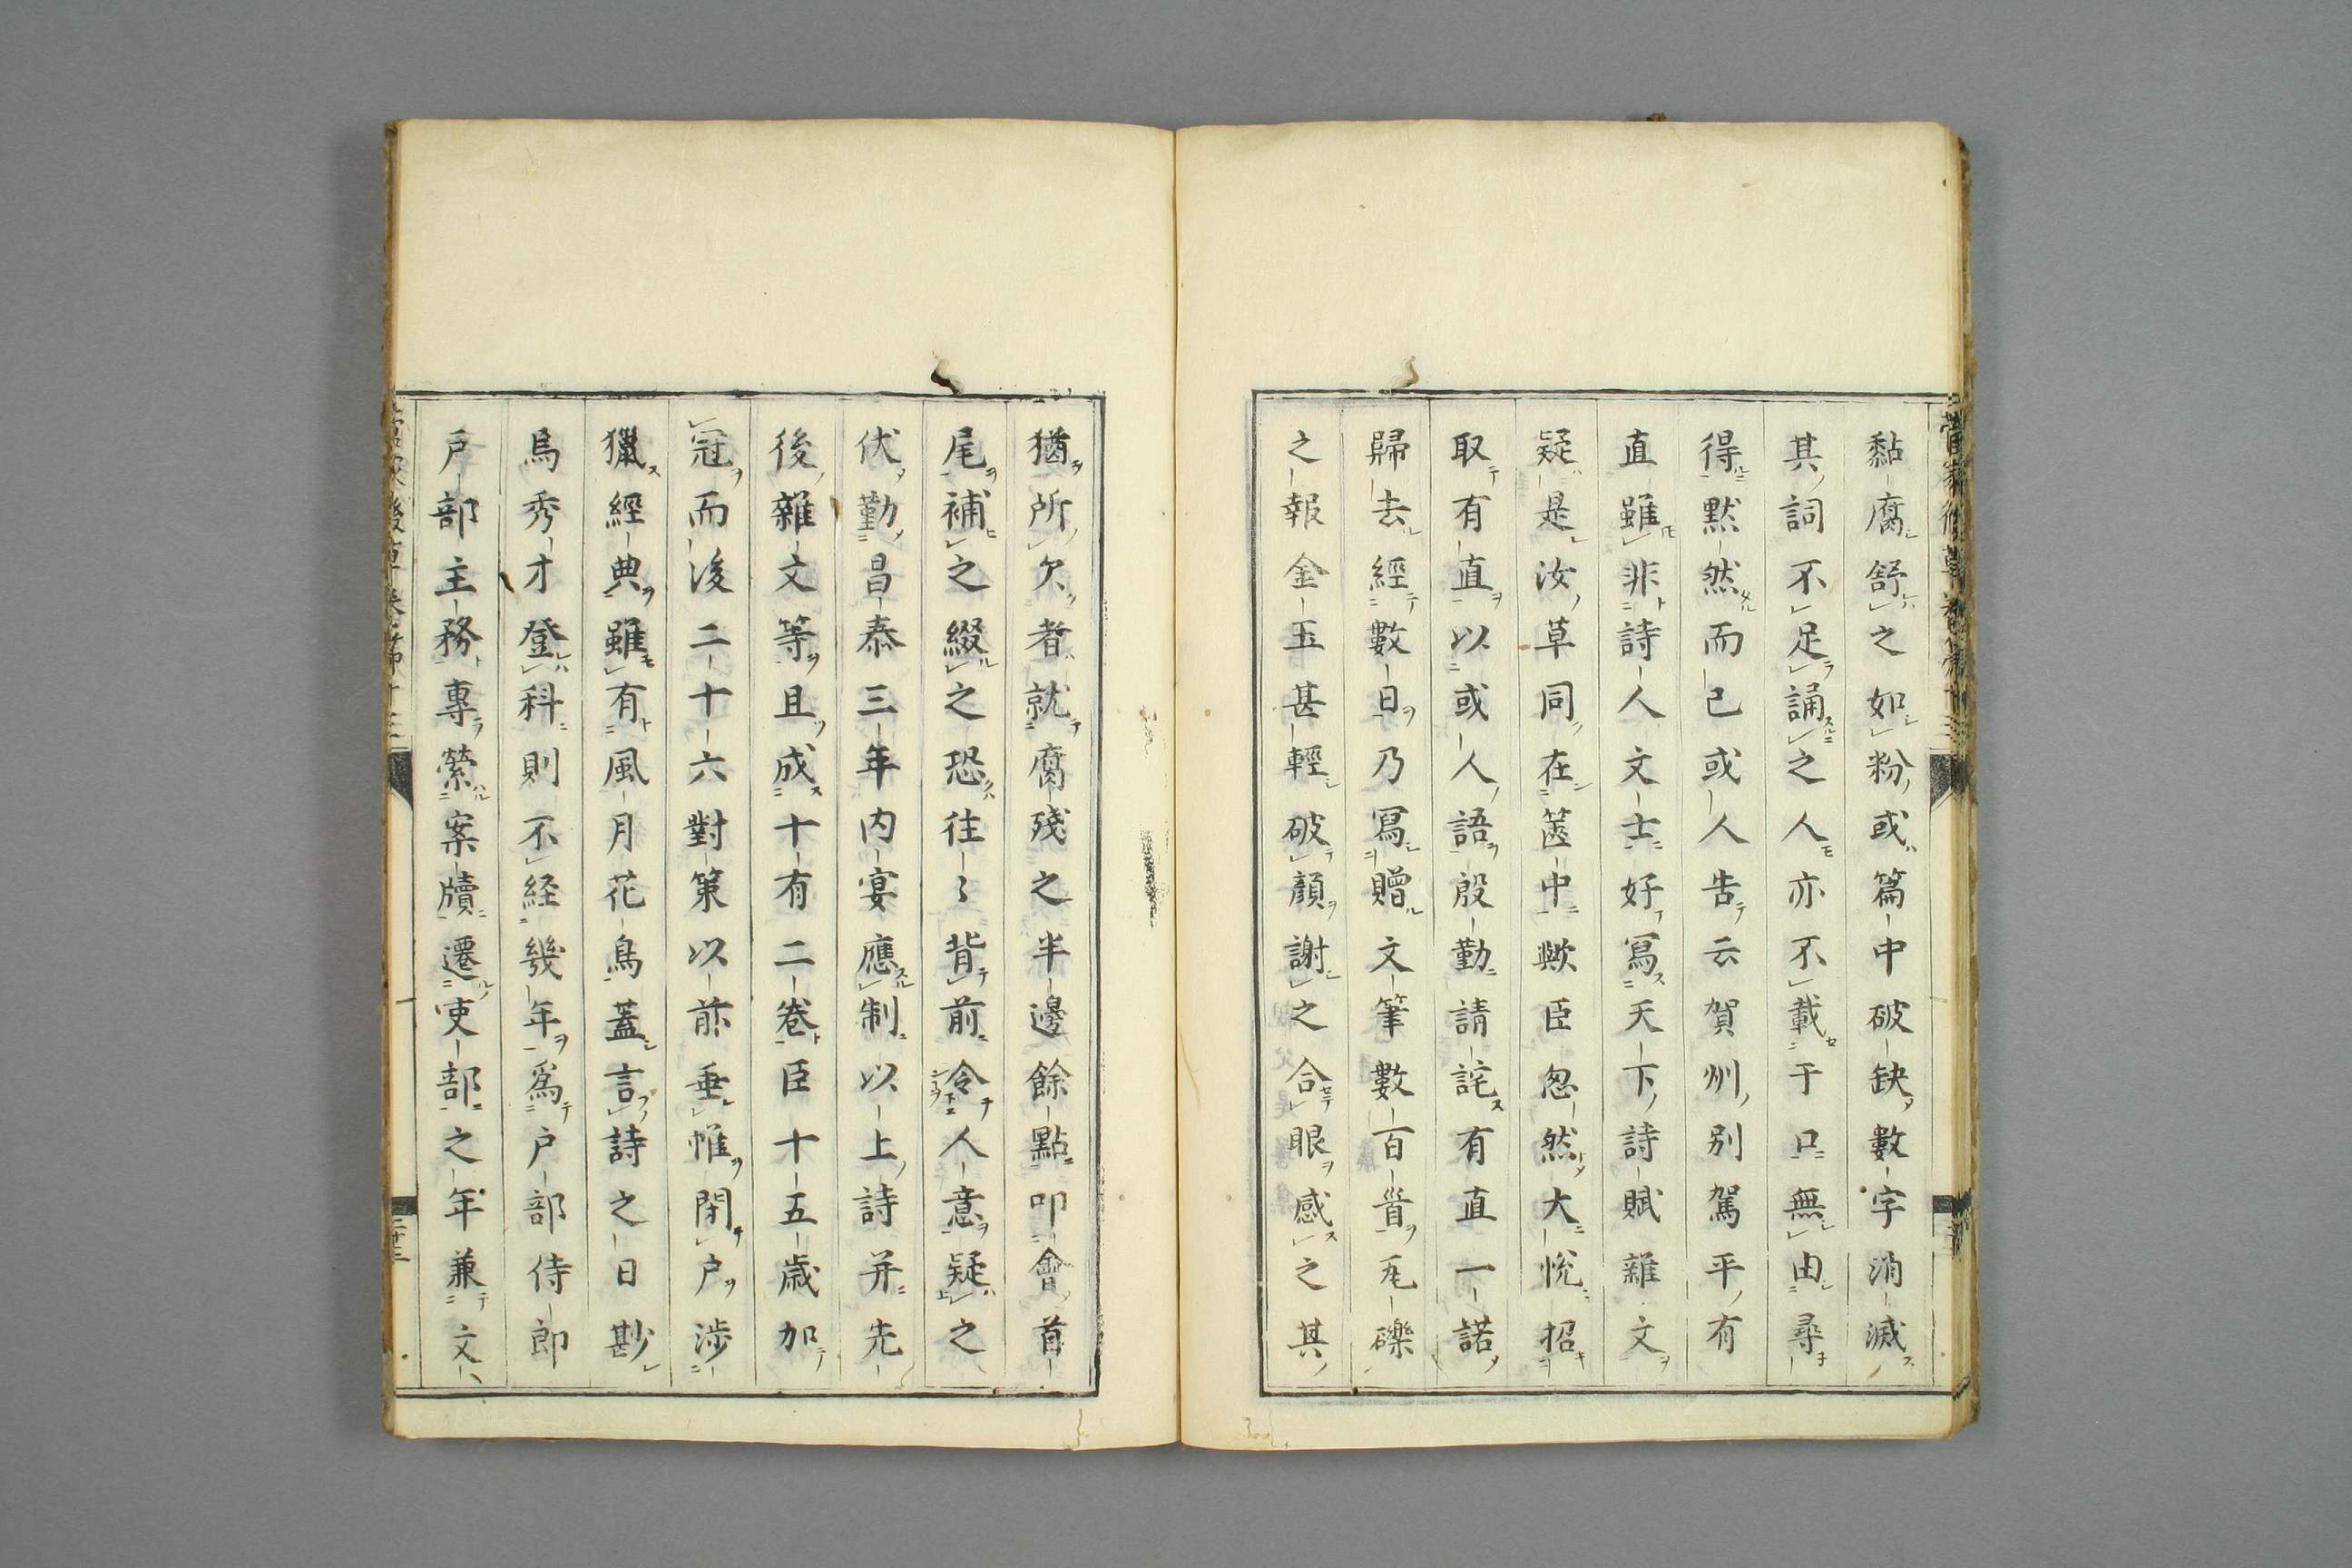 黏腐舒之如粉或篇中破缺數字消滅
其詞不足誦之人亦不載于口無由尋
得默然而已或人告云賀州別駕平有
直雖非詩人文士好冩天下詩賦雜文
疑是汝草同在篋中歟臣忽然大悅招
取有直以或人語殷勤請詫有直一諾
歸去經數日乃冩贈文筆數百首瓦礫
之報金玉甚輕破顏謝之合眼感之其
猶所欠者就腐殘之半邊餘點叩會首
尾補之綴之恐往〻背前令人意疑之
伏勤昌泰三年内宴應制以上詩并先
後雜文等且成十有二卷臣十五歲加
冠而後二十六對策以前垂帷閉戸渉
獵經典雖有風月花鳥蓋言詩之日尠
焉秀才登科則不経幾年爲戸部侍郎
戸部主務專縈案牘遷吏部之年兼文